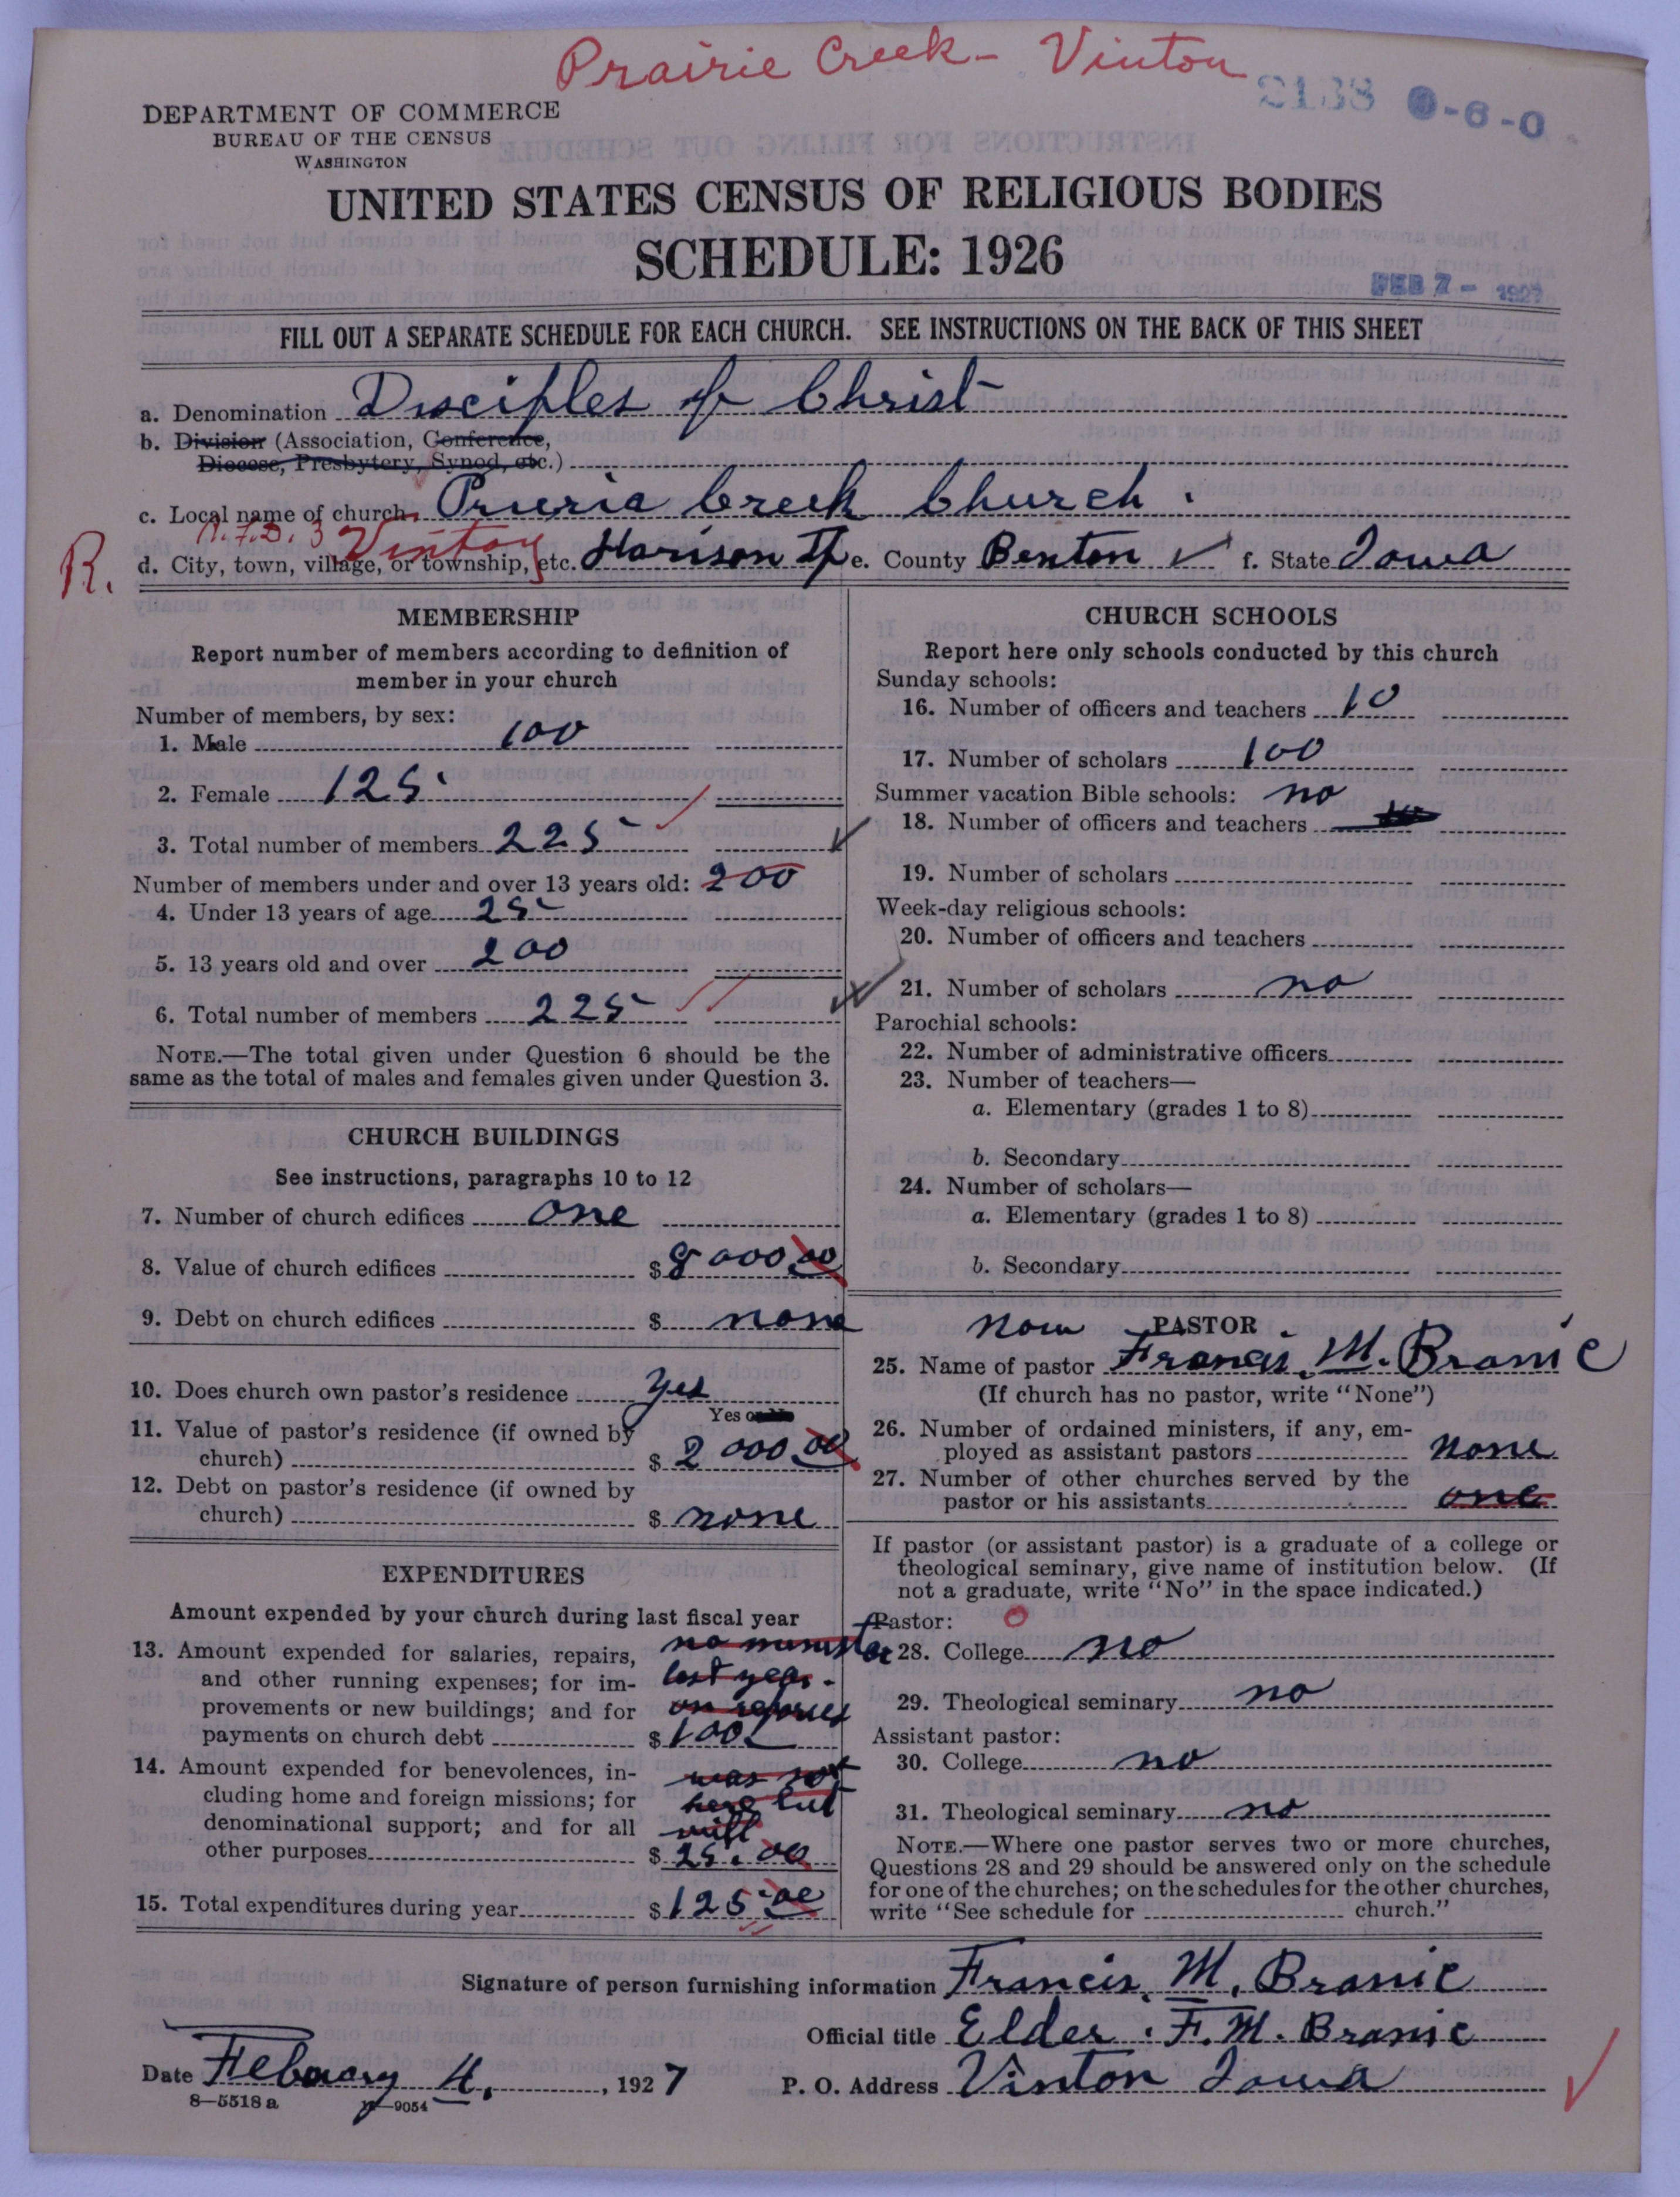 Prairie Creek - Vinton
2138 0-6-0
DEPARTMENT OF COMMERCE
BUREAU OF THE CENSUS
WASHINGTON
UNITED STATES CENSUS OF RELIGIOUS BODIES
SCHEDULE: 1926
FEB 7 - 1927
FILL OUT A SEPARATE SCHEDULE FOR EACH CHURCH. SEE INSTRUCTIONS ON THE BACK OF THIS SHEET
a. Denomination Disciples of Christ
b. Division (Association, Conference,
Diocese, Presbytery, Synod, etc.)
c. Local name of church Prueria Creek Church.
R. R.F.D. 3 Vinton
d. City, town, village, or township, etc. Harison Tp e. County Benton f. State Iowa
MEMBERSHIP
Report number of members according to definition of
member in your church
Number of members, by sex:
1. Male 100
2. Female 125
3. Total number of members 225
Number of members under and over 13 years old: 200
4. Under 13 years of age 25
5. 13 years old and over 200
6. Total number of members 225
NOTE.—The total given under Question 6 should be the
same as the total of males and females given under Question 3.
CHURCH BUILDINGS
See instructions, paragraphs 10 to 12
7. Number of church edifices one
8. Value of church edifices $ 8000 00
9. Debt on church edifices $ none
10. Does church own pastor's residence yes
Yes or No
11. Value of pastor's residence (if owned by
church) $ 2000 00
12. Debt on pastor's residence (if owned by
church) $ none
EXPENDITURES
Amount expended by your church during last fiscal year
13. Amount expended for salaries, repairs, no minister
and other running expenses; for im- last year.
provements or new buildings; and for on
payments on church debt $ 100
14. Amount expended for benevolences, in- was not
cluding home and foreign missions; for here but
denominational support; and for all
other purposes $ 25.00
15. Total expenditures during year $ 125 00
CHURCH SCHOOLS
Report here only schools conducted by this church
Sunday schools:
16. Number of officers and teachers 10
17. Number of scholars 100
Summer vacation Bible schools: no
18. Number of officers and teachers
19. Number of scholars
Week-day religious schools:
20. Number of officers and teachers
21. Number of scholars no
Parochial schools:
22. Number of administrative officers
23. Number of teachers—
a. Elementary (grades 1 to 8)
b. Secondary
24. Number of scholars—
a. Elementary (grades 1 to 8)
b. Secondary
now PASTOR
25. Name of pastor Francis. M. Branic
(If church has no pastor, write "None")
26. Number of ordained ministers, if any, em-
ployed as assistant pastors none
27. Number of other churches served by the
pastor or his assistants one
If pastor (or assistant pastor) is a graduate of a college or
theological seminary, give name of institution below. (If
not a graduate, write "No" in the space indicated.)
Pastor: 0
28. College no
29. Theological seminary no
Assistant pastor:
30. College no
31. Theological seminary no
NOTE.—Where one pastor serves two or more churches,
Questions 28 and 29 should be answered only on the schedule
for one of the churches; on the schedules for the other churches,
write "See schedule for church."
Signature of person furnishing information Francis. M. Branic
Official title Elder. F. M. Branic
Date Febuary 4, 1927 P. O. Address Vinton Iowa
8—5518 a 11—9054